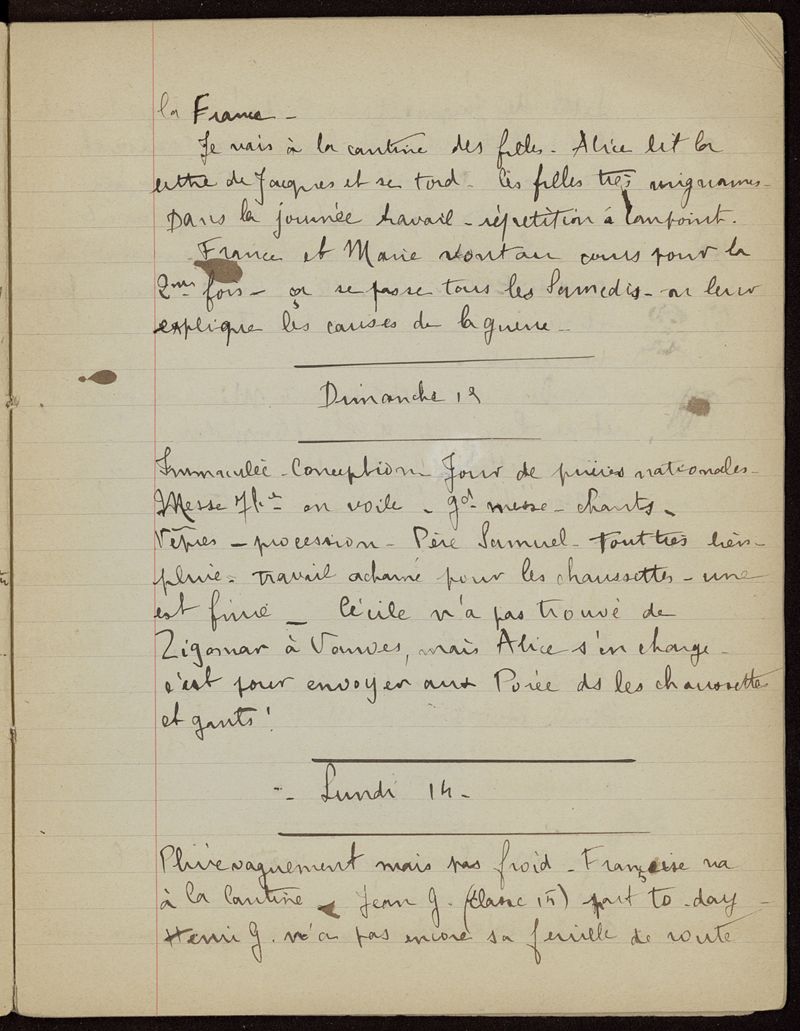 la France -
Je vais à la cantine des filles - Alice lit la
lettre de Jacques et se tord - les filles très mignonnes -
Dans la journée travail - répetition à
France et Marie vont au cours pour la
2me fois - ça se passe tous les Samedis - on leur
explique les causes de la guerre -
Dimanche 13
Immaculée - Conception - Jour de prières nationales -
Messe 7h en voile - gd messe - chants -
Vêpres - procession - Père Samuel - tout très bien -
pluie - travail acharné pour les chaussettes - une
est finie - Cécile n'a pas trouvé de
Zigomar à Vanves, mais Alice s'en charge -
c'est pour envoyer aux Poree ds les chaussettes
et gants !
- Lundi 14 -
Pluie vaguement mais pas froid - Françoise va
à la Cantine - Jean G. (Classe 15) part to-day -
Henri G. n'a pas encore sa feuille de route